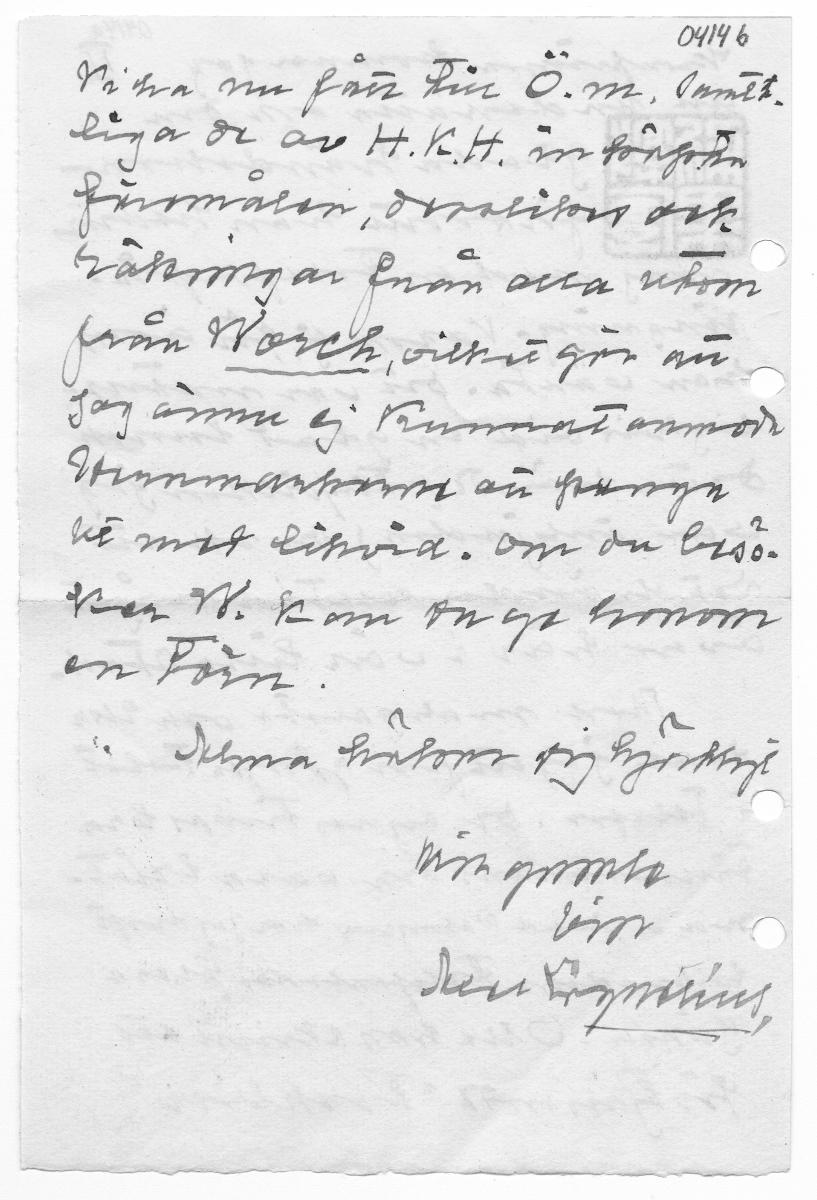 04146
Vi ha nu fått till Ö.m. samt-
liga de av H.K.H. inköpta
föremålen, dessutom ock
räkningar från alla utom
från Worch, vilket gör att
jag ännu ej kunnat anmoda
att
vi med likvid. Om du besö-
ker W. kan du ge honom
en
Alma hälsar dig hjärtligt
Din gamle
vän
Axel Lagrelius,